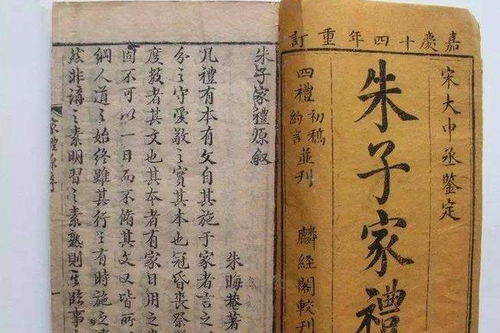 嘉慶十四年重訂
宋大中丞鑒定
朱子家禮
四禮初稿約言並刊
麟經閣較刊
朱子家禮原叙
朱晦菴著
凡禮有本有文自其施于家者言之
分之守愛敬之實其本也冠昏喪祭
度數者其文也其本者有家日用之
固不可以一日而不脩其文又皆所
綱人道之始終雖其行之有時施之
然非講之素明習之素熟則其臨事
家禮原序